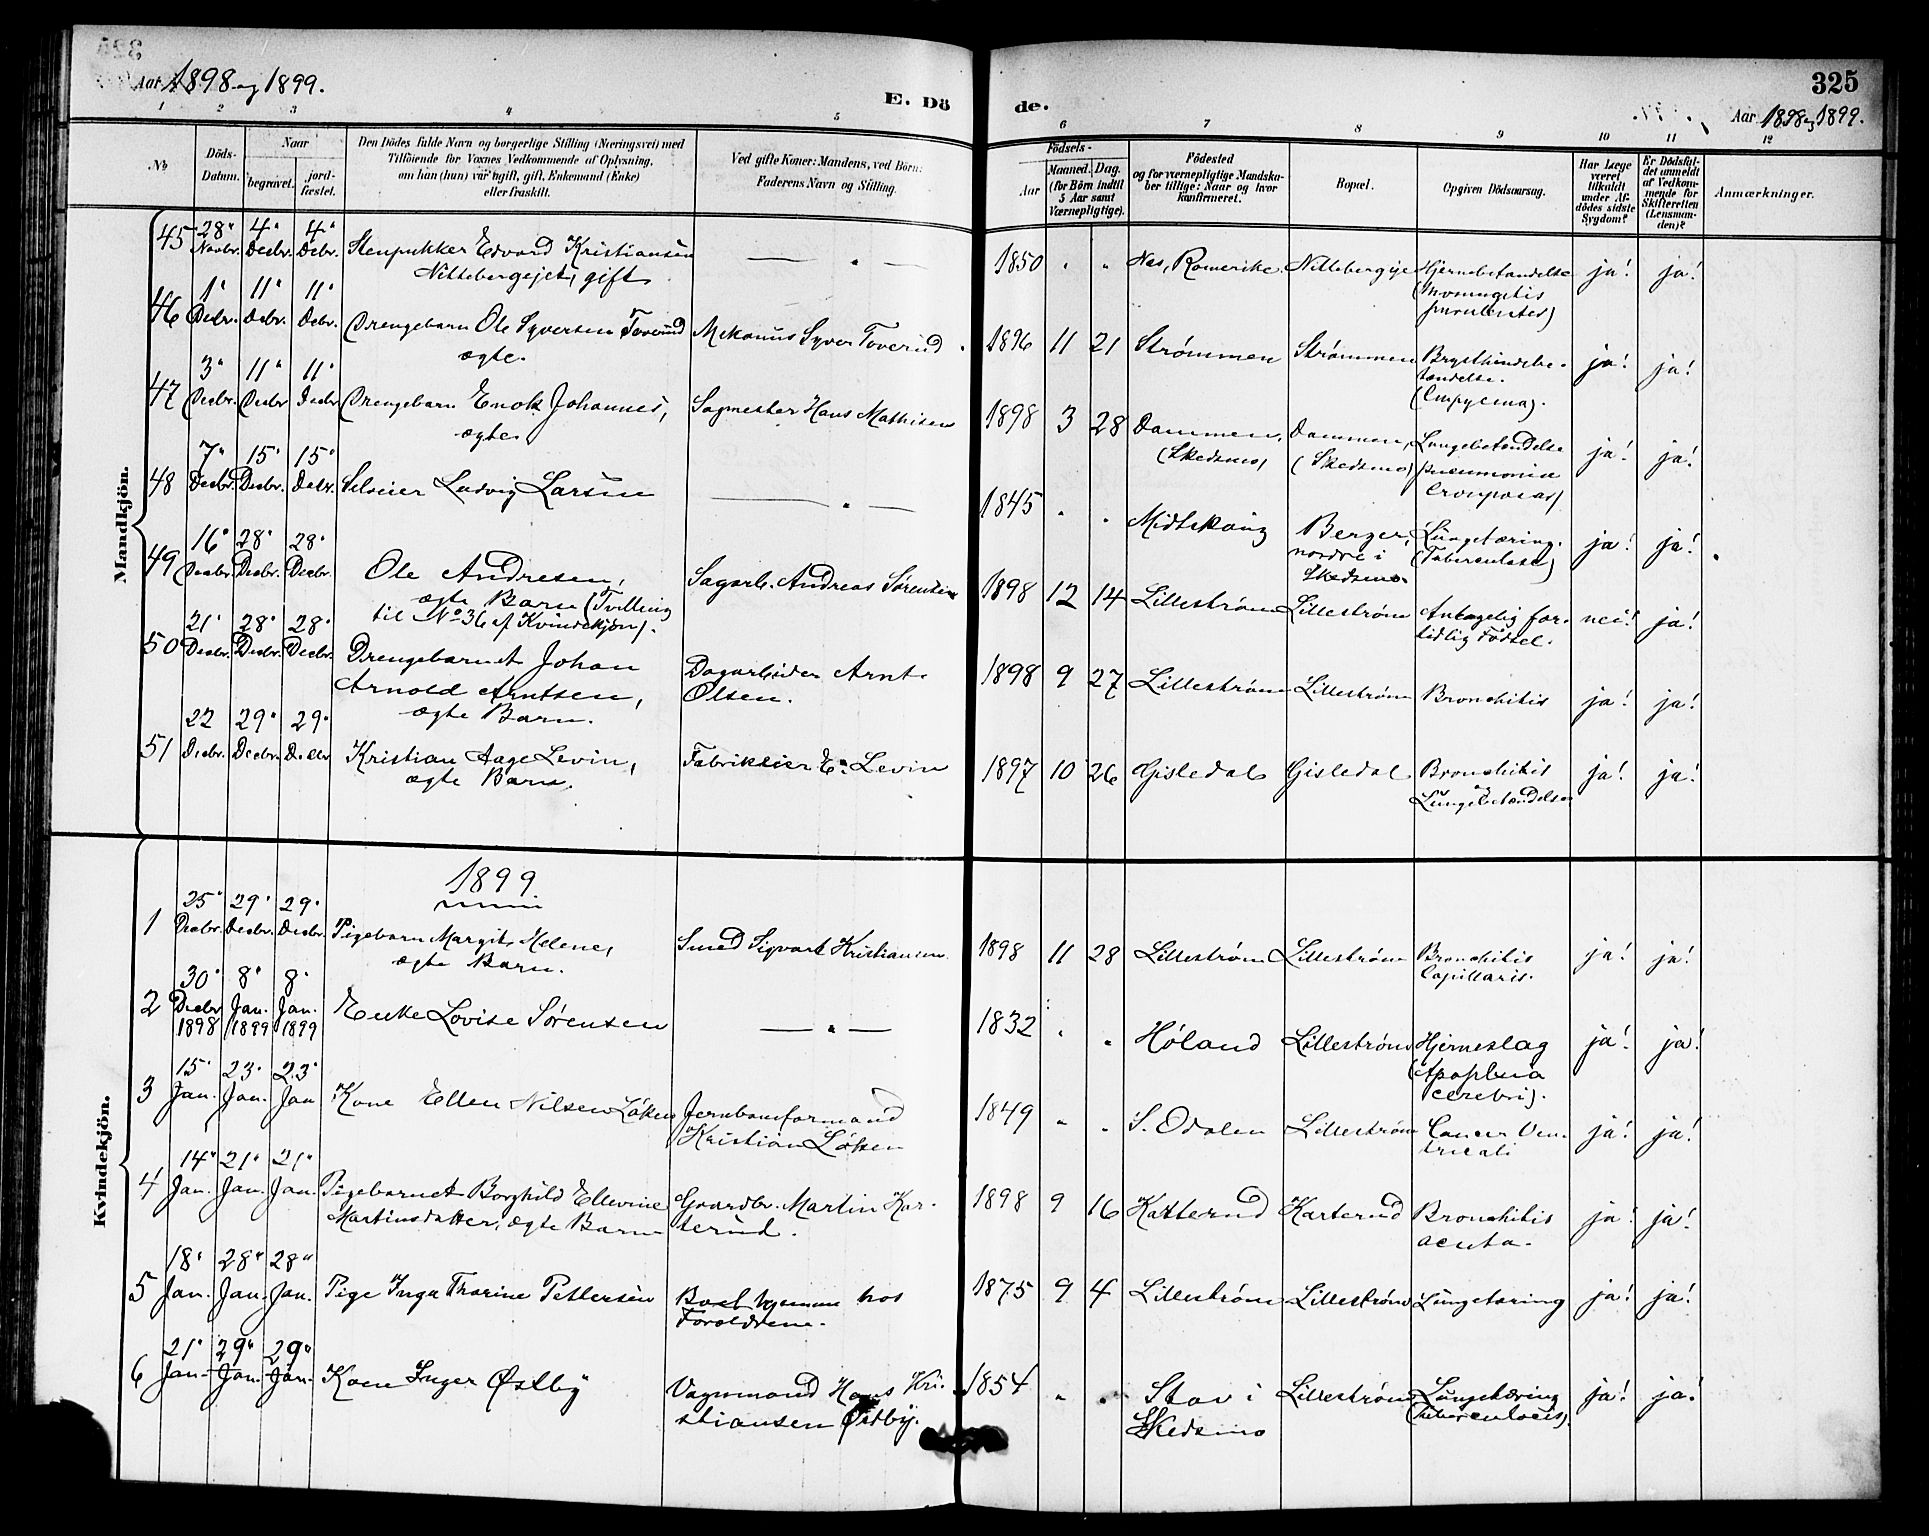 Aar 1898 og 1899.
E. Dö
de.
325
Aar 1898 og 1899.
1 2 3 4 5 6 7 8 9 10 11 12
No
Döds-
Datum.
Naar
begravet.
jord-
fæstet.
Den Dödes fulde Navn og borgerlige Stilling (Næringsvei) med
Tilföiende for Voxnes Vedkommende af Oplysning,
om han (hun) var ugift, gift, Enkemand (Enke)
eller fraskilt.
Ved gifte Koner: Mandens, ved Börn:
Faderens Navn og Stilling.
Födsels-
Aar
Maaned. Dag.
(for Börn indtil
5 Aar samt
Værnepligtige).
Födested
og for værnepligtige Mandska-
ber tillige: Naar og hvor
konfirmeret.
Bopæl.
Opgiven Dödsaarsag.
Har Læge
været
tilkaldt
under Af-
dödes sidste
Sygdom?
Er Dödsfal-
det anmeldt
af Vedkom-
mende for
Skifteretten
(Lensman-
den)?
Anmærkninger.
Mandkjön.
45 28' Novbr. 4' Decbr. 4' Debr. Stenpukker Edvard Kristiansen — " — 1850 " " Nes, Romerike Nittebergeje Hjernebetændelse ja! ja!
Nittebergejet, gift
46 1' Decbr. 11' Debr. 11' Debr. Drengebarn Ole Syversen Toverud Mekanus Syver Toverud. 1896 11 21 Strømmen Strømmen Brysthindebe- ja! ja!
ægte.
tændelse.
(Empyema).
47 3' Decbr. 11' Decbr. 11' Decbr Drengebarn Enok Johannes, Sagmester Hans Mathisen 1898 3 28 Dammen, Dammen, Lungebetændelse ja! ja!
ægte.
(Skedsmo) (Skedsmo) pneumonia
crouposa)
48 7' Decbr. 15' Decbr. 15' Debr. Selveier Ludvig Larsen — " — 1845 " " Midtskoug Berger, Lungetæring. ja! ja!
nordre i (Tuberculose)
Skedsmo.
49 16' Decbr. 28' Decbr. 28' Decbr. Ole Andresen, Sagarb. Andreas Sørensen 1898 12 14 Lillestrøm Lillestrøm Antagelig for- nei! ja!
ægte Barn (Tvilling tidlig Fødsel.
til No 36 af Kvindekjøn).
50 21' Decbr. 28' Decbr. 28' Decbr. Drengebarnet Johan Dagarbeider Arnt 1898 9 27 Lillestrøm Lillestrøm Bronchitis ja! ja!
Arnold Arntsen, Olsen.
ægte Barn.
51 22 Decbr. 29' Decbr. 29' Decbr Kristian Aage Levin, Fabrikeier E. Levin 1897 10 26 Gisledal Gisledal Bronchitis ja! ja!
ægte Barn. og
Lungebetændelse
Kvindekjön.
1899.
1 25' Decbr. 29' Decbr. 29' Decbr. Pigebarn Margit Helene, Smed Sigvart Kristiansen 1898 11 28 Lillestrøm Lillestrøm Bronchitis ja! ja!
ægte Barn. Capillaris.
2 30' Decbr 1898 8' Jan. 1899 8' Jan. 1899 Enke Lovise Sørensen — " — 1832 " " Høland Lillestrøm Hjerneslag ja! ja!
(Apoplexia
cerebri).
3 15' Jan. 23' Jan. 23' Jan Kone Ellen Nilsen Løken Jernbaneformand 1849 " " S. Odalen Lillestrøm Cancer Ven- ja! ja!
Kristian Løken triculi
4 14' Jan. 21' Jan. 21' Jan. Pigebarnet Borghild Ellevine Gaardbr. Martin Kar- 1898 9 16 Katterud Karterud Bronchitis ja! ja!
Martinsdatter, ægte Barn terud. acuta.
5 18' Jan. 28' Jan. 28' Jan. Pige Inga Thorine Pettersen Boet hjemme hos 1875 9 4 Lillestrøm Lillestrøm Lungetæring ja! ja!
Forældrene.
6 21' Jan. 29' Jan. 29' Jan. Kone Inger Østby Vognmand Hans Kri- 1854 " " Stav i Lillestrøm Lungetæring ja! ja!
stiansen Østby. Skedsmo (Tuberculosis).